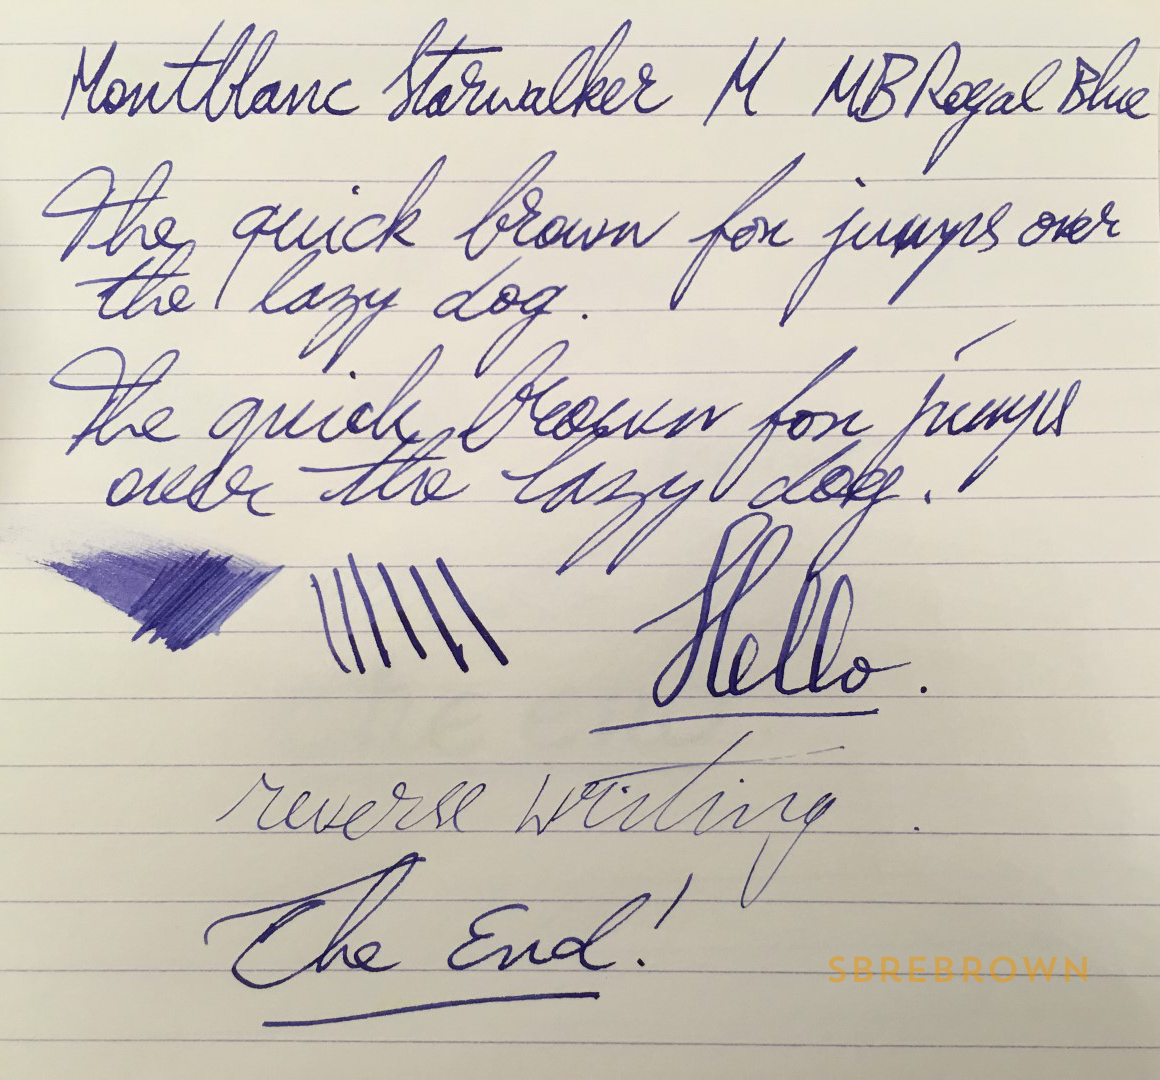 Montblanc Starwalker M MB Royal Blue
The quick brown fox jumps over
the lazy dog.
The quick brown fox jumps
over the lazy dog.
Hello.
reverse writing.
The End!
SBREBROWN